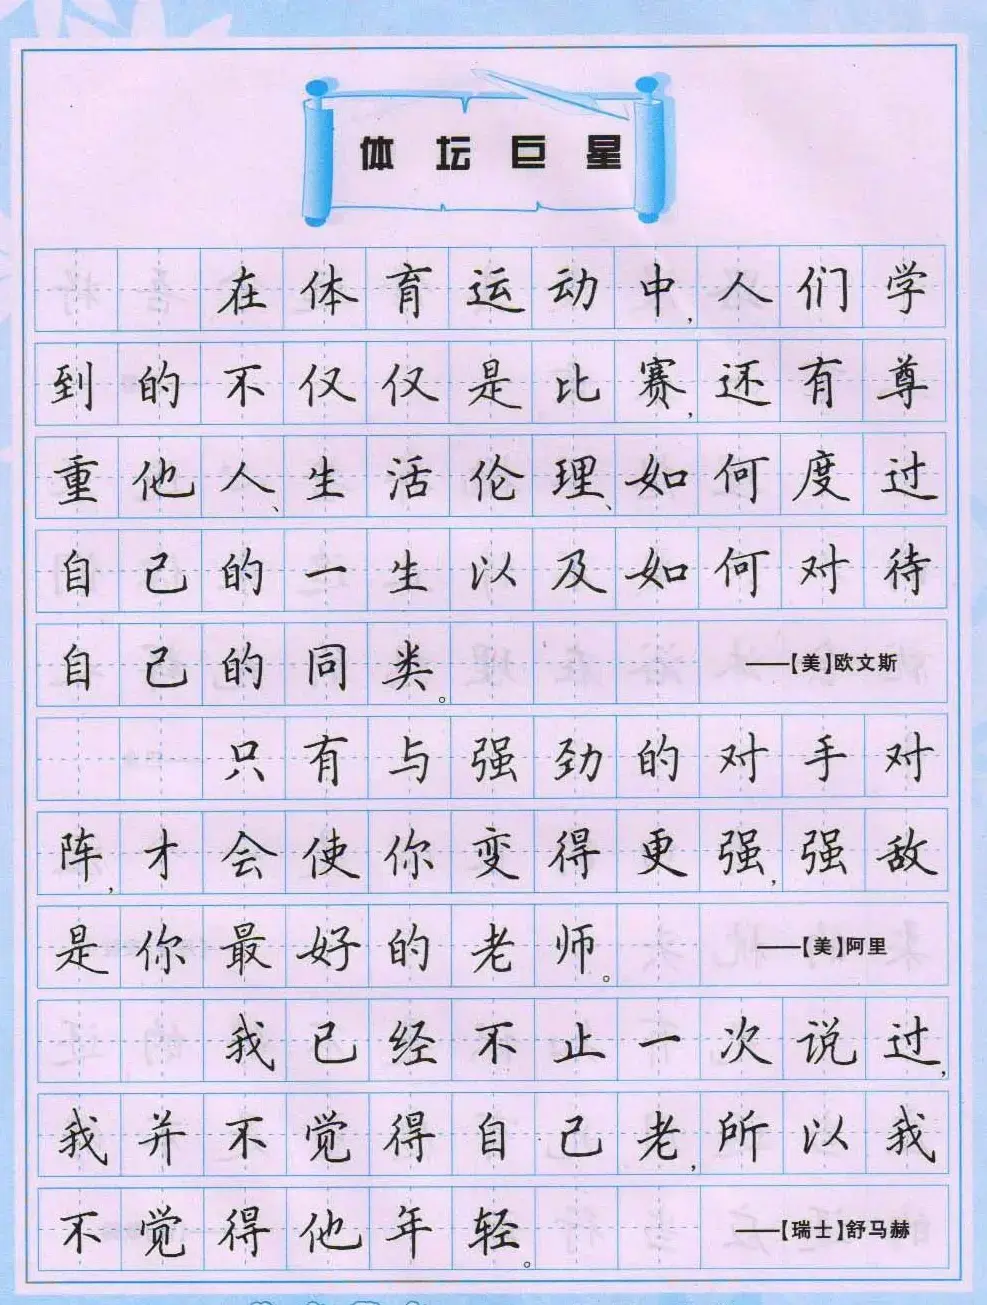 体坛巨星
在体育运动中,人们学
到的不仅仅是比赛,还有尊
重他人、生活伦理、如何度过
自己的一生以及如何对待
自己的同类。 ——【美】欧文斯
只有与强劲的对手对
阵,才会使你变得更强,强敌
是你最好的老师。 ——【美】阿里
我已经不止一次说过,
我并不觉得自己老,所以我
不觉得他年轻。 —【瑞士】舒马赫